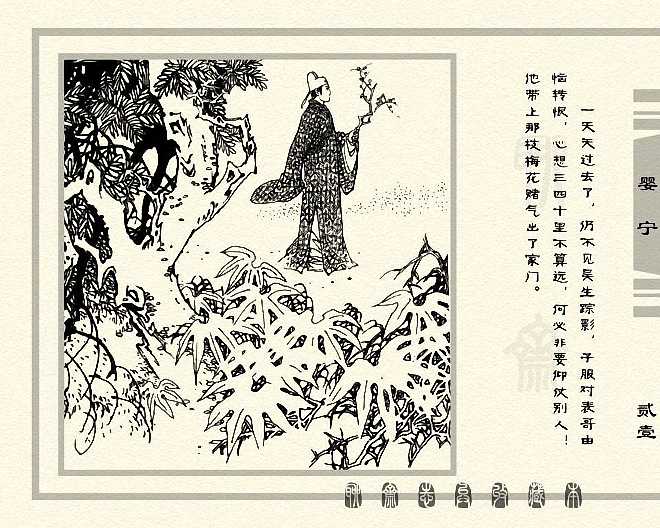 一天天过去了，仍不见吴生踪影，子服对表哥由
恼转恨，心想三四十里不算远，何必非要仰仗别人！
他带上那枝梅花赌气出了家门。
婴宁
贰壹
聊斋志异收藏本